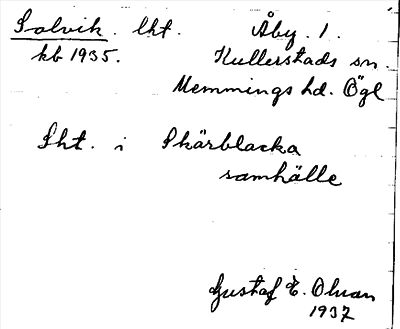 Solvik. lht. Åby. 1.
kb 1935. Kullerstads sn.
Memmings hd. Ögl
Lht. i Skärblacka
samhälle
Gustaf E. Olson
1937